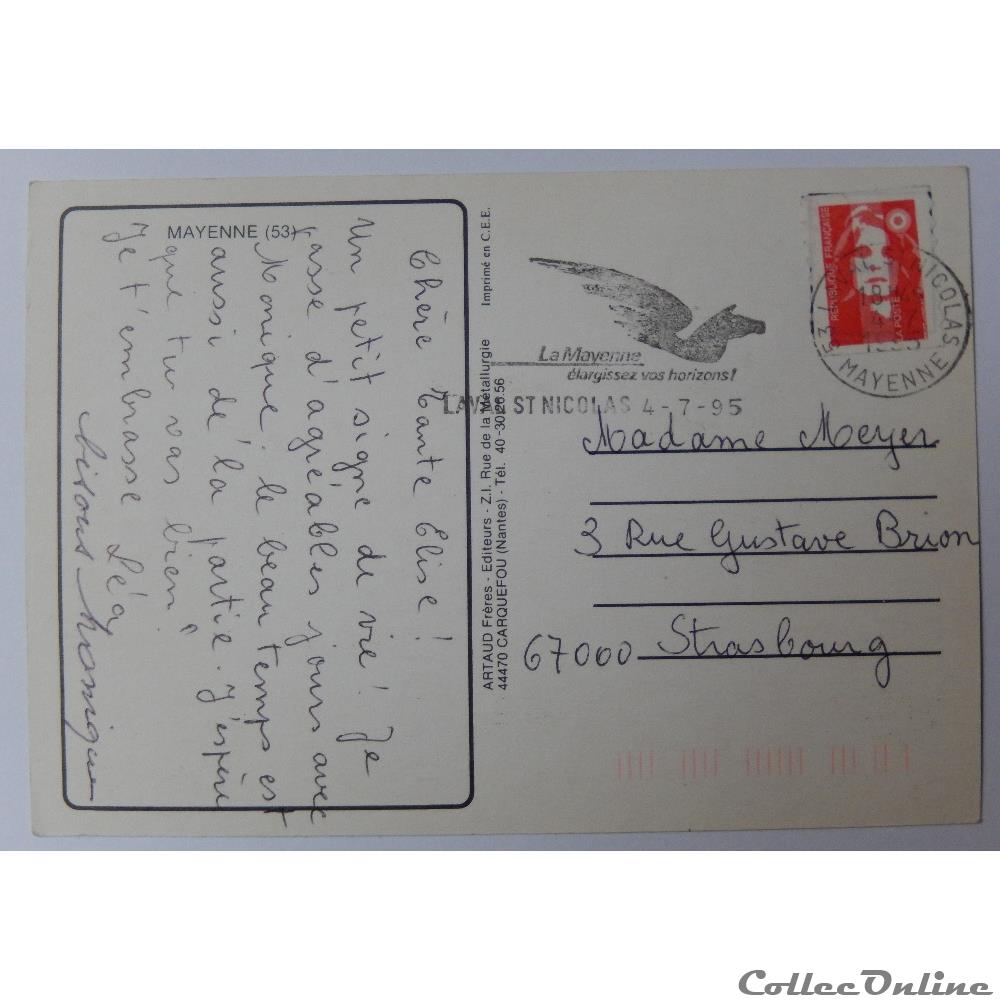 MAYENNE (53)
Chère tante Elise!
Un petit signe de vie! Je
passe d'agréables jours avec
Monique. le beau temps est
aussi de la partie. J'espère
que tu vas bien!
Je t'embrasse Léa
bisous Monique
Imprimé en C.E.E.
ARTAUD Frères - Editeurs - Z.I. Rue de la Métallurgie
44470 CARQUEFOU (Nantes) - Tél. 40-30.26.56
La Mayenne
élargissez vos horizons!
LAVAL ST NICOLAS 4-7-95
REPUBLIQUE FRANÇAISE
LA POSTE
NICOLAS
MAYENNE
Madame Meyer
3 Rue Gustave Brion
67000 Strasbourg
CollecOnline